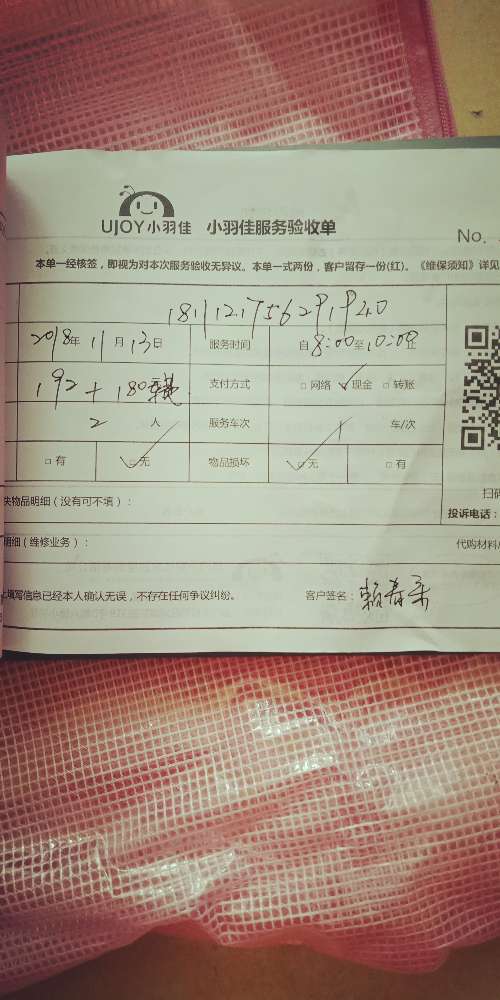 UJOY小羽佳 小羽佳服务验收单
No.
本单一经核签，即视为对本次服务验收无异议。本单一式两份，客户留存一份(红)。《维保须知》详见
2018年 11月 13日 服务时间 自 8:00 至 10:00 止
192 + 180 支付方式 □ 网络 ✓ 现金 □ 转账
2 人 服务车次 1 车/次
□ 有 ✓□ 无 物品损坏 ✓□ 无 □ 有
扫码
失物品明细（没有可不填）：
投诉电话：
明细（维修业务）： 代购材料
填写信息已经本人确认无误，不存在任何争议纠纷。 客户签名：